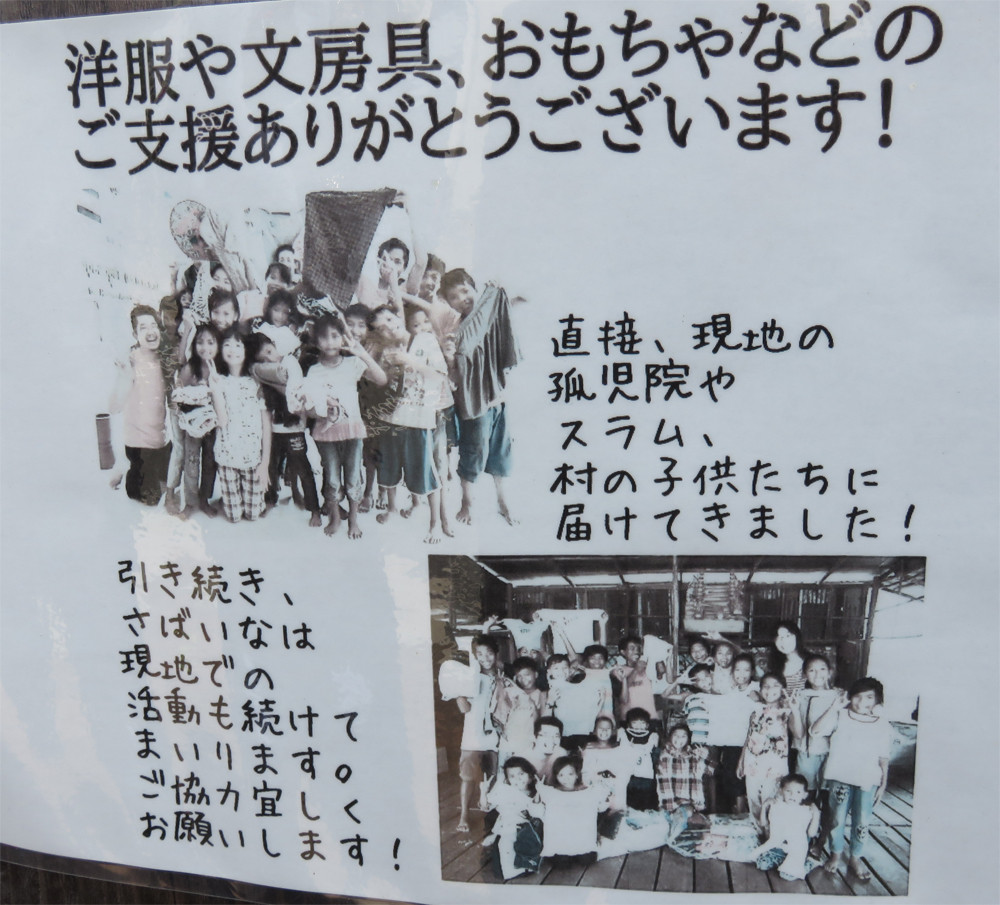 洋服や文房具、おもちゃなどの
ご支援ありがとうございます！
直接、現地の
孤児院や
スラム、
村の子供たちに
届けてきました！
引き続き、
さばいなは
現地での
活動も続けて
まいります。
ご協力宜しく
お願いします！